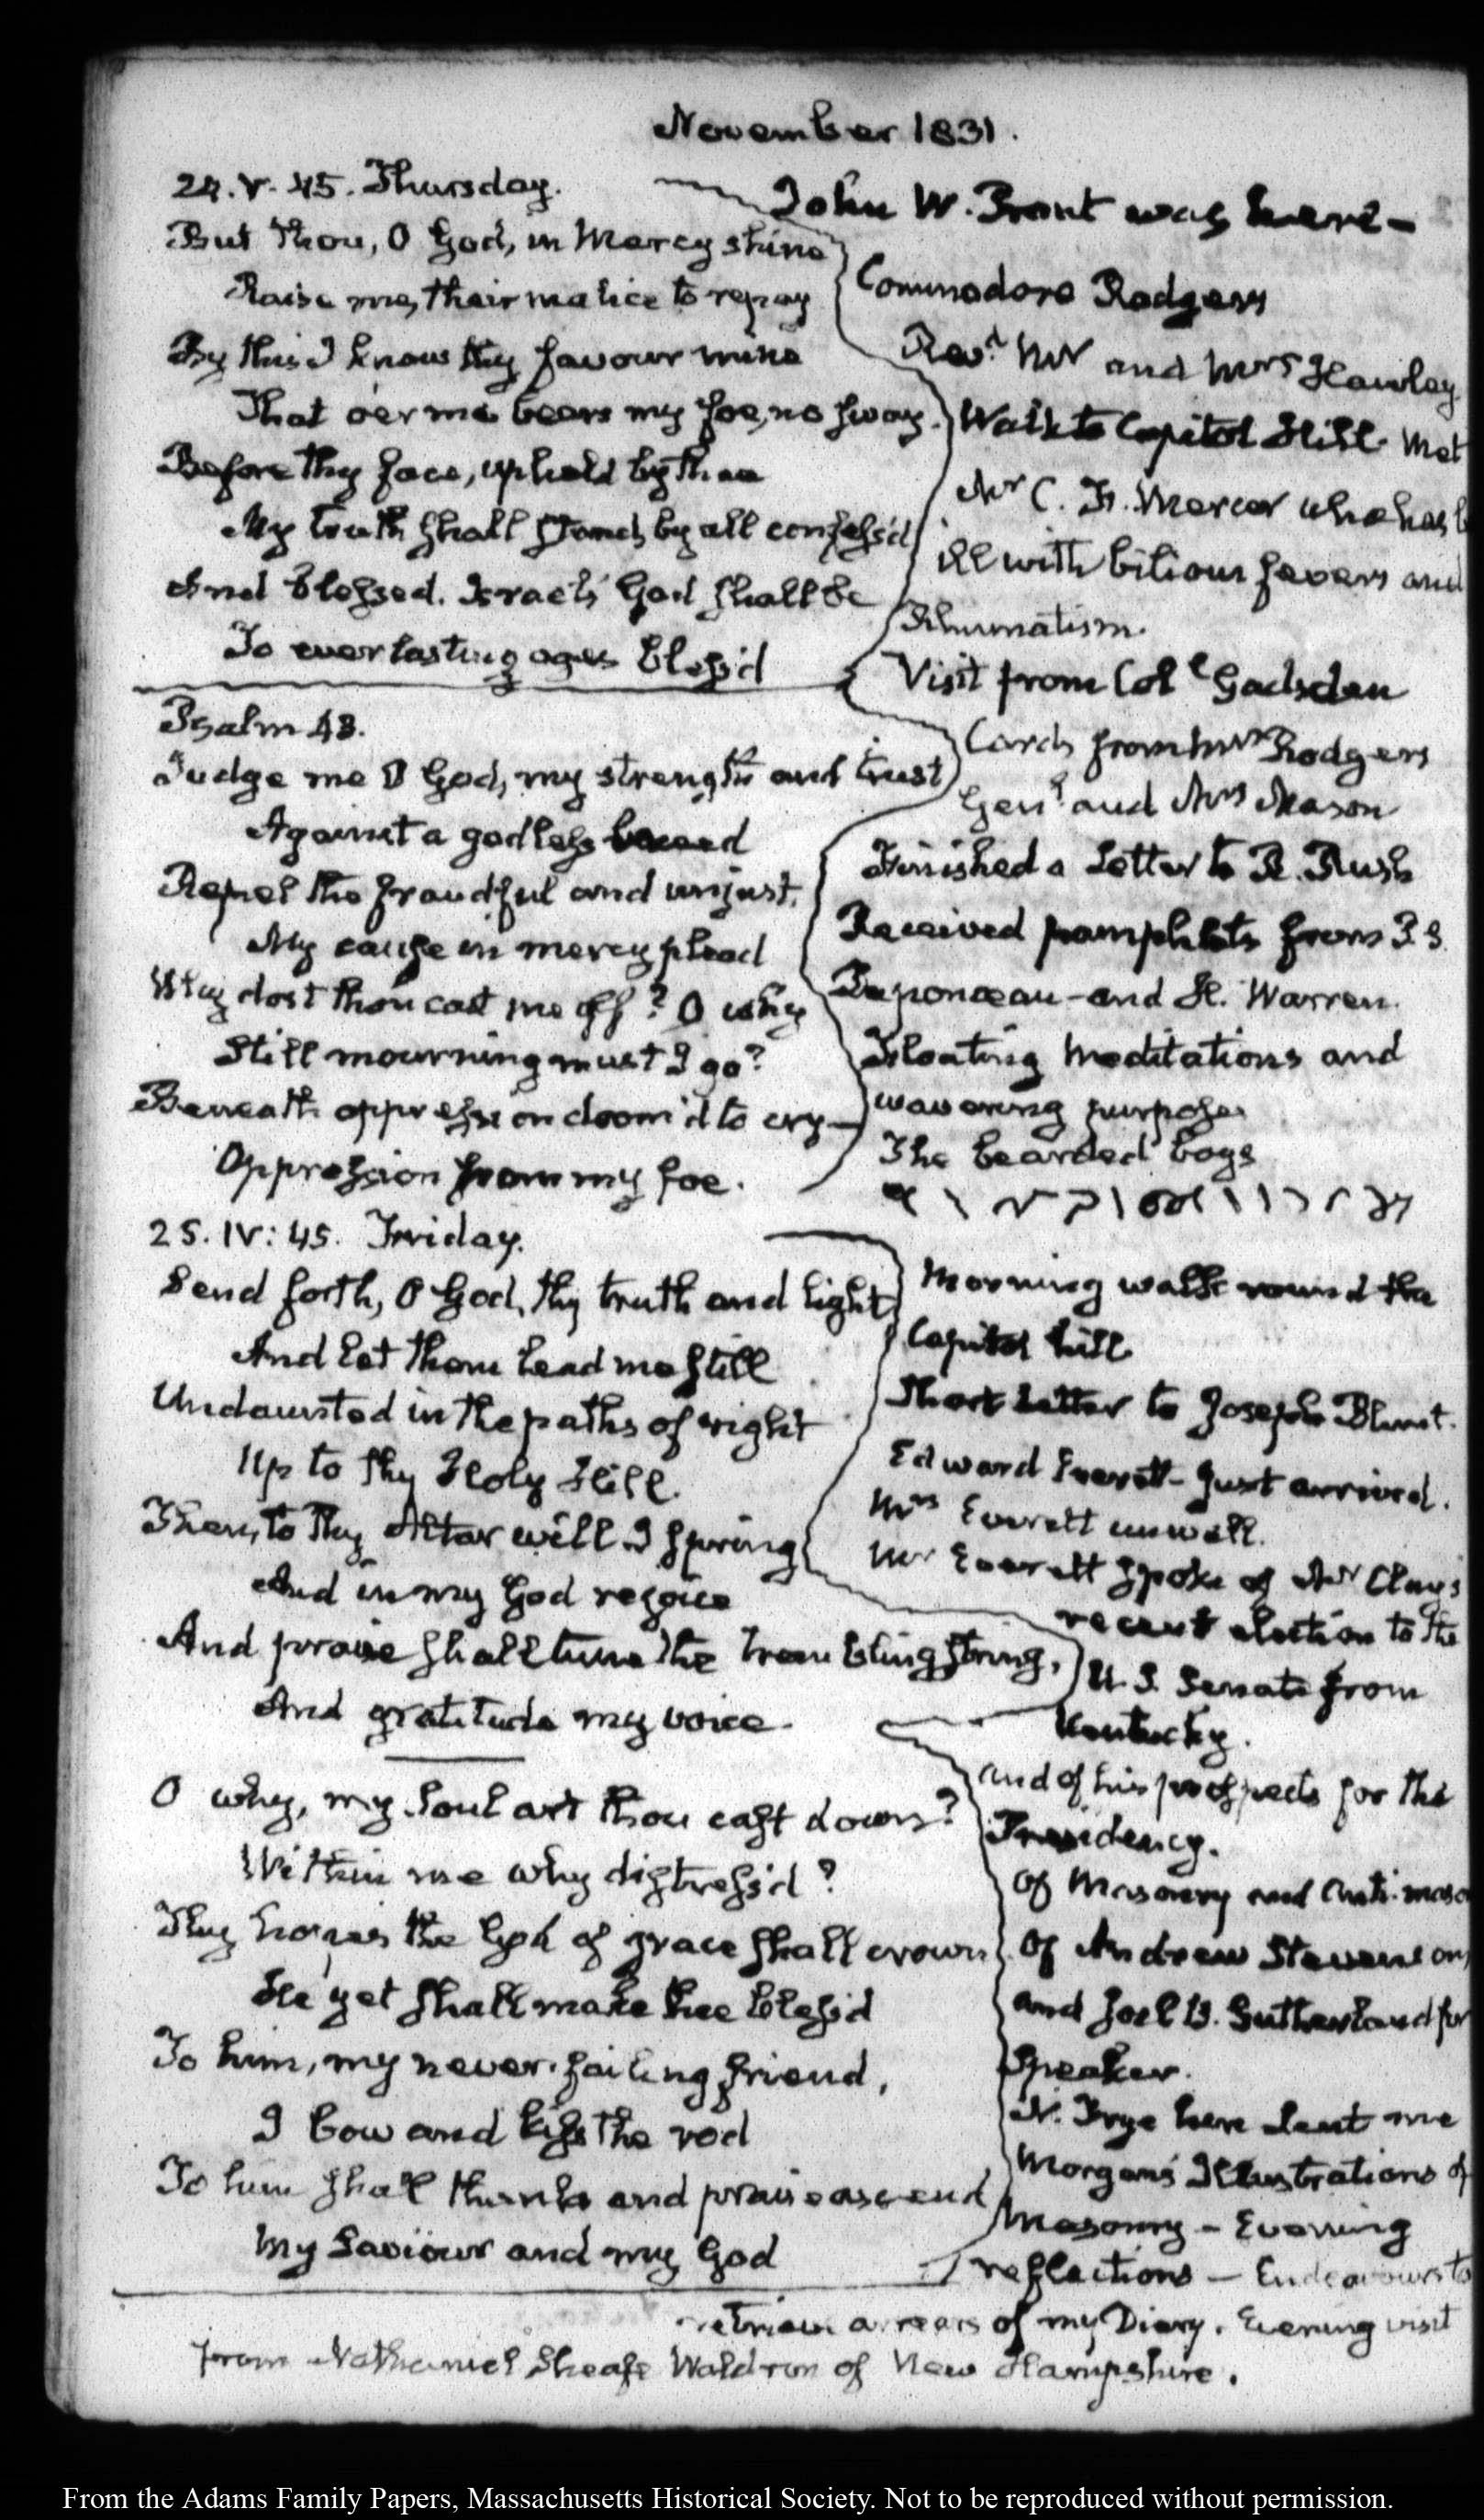 November 1831.
24. V. 45. Thursday.
But Thou, O God, in Mercy shine
Raise me, their malice to repay
By this I know thy favour mine
That oer me bears my foe, no sway.
Before thy face, upheld by thee
My truth shall stand, by all confess'd
And blessed. Israel's God shall be
To everlasting ages bless'd
Psalm 43.
Judge me O God, my strength and trust
Against a godless breed
Repel the fraudful and unjust.
My cause in mercy plead
Why dost thou cast me off? O why
Still mourning must I go?
Beneath oppression doom'd to cry—
Oppression from my foe.
John W. Brent was here—
Commodore Rodgers
Revd. Mr and Mrs Hawley
Walk to Capitol Hill. Met
Mr C. F. Mercer who has b
ill with bilious fevers and
Rhumatism.
Visit from Col.l Gadsden
Cards from Mrs Rodgers
Genl. and Mrs Mason
Finished a Letter to R. Rush
Received pamphlets from P. S.
Duponceau—and H. Warren.
Floating Meditations and
wavering purposes
The bearded boys
25. IV: 45. Friday.
Send forth, O God, thy truth and light
And let them lead me still
Undaunted in the paths of right
Up to Thy Holy Hill.
Then, to Thy Altar will I spring
And in my God rejoice
And praise shall tune the trembling string,
And gratitude my voice.
O why, my Soul art thou cast down?
Within me why distress'd?
Thy hopes the God of grace shall crown
He yet shall make thee bless'd
To him, my never-failing friend,
I bow and kiss the rod
To him shall thanks and praise ascend
My Saviour and my God
Morning walk round the
Capitol hill
Short Letter to Joseph Blunt.
Edward Everett—just arrived.
Mrs Everett unwell.
Mr Everett spoke of Mr Clay's
recent election to the
U. S. Senate from
Kentucky.
and of his prospects for the
Presidency.
Of Masonry and Anti-maso
Of Andrew Stevenson,
and Joel B. Sutherland for
Speaker.
N. Frye here Lent me
Morgan's Illustrations of
Masonry—Evening
reflections—Endeavours to
retrieve arrears of my Diary. Evening visit
from Nathaniel Sheafe Waldron of New Hampshire.
From the Adams Family Papers, Massachusetts Historical Society. Not to be reproduced without permission.